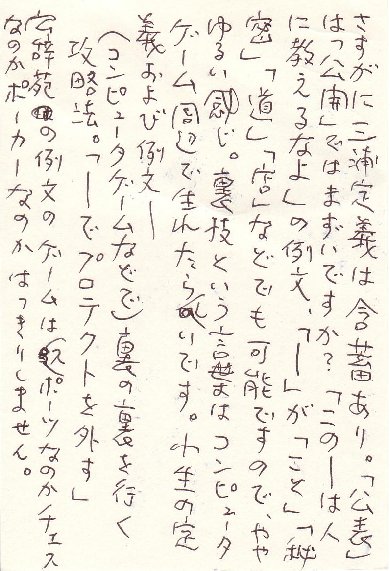 さすがに三浦定義は含蓄あり。「公表」
は「公開」ではまずいですか？「この―は人
に教えるなよ」の例文、「―」が「こと」「秘
密」「道」「店」などでも可能ですので、やや
ゆるい感じ。裏技という言葉はコンピュータ
ゲーム周辺で生れたらしいです。小生の定
義および例文―
（コンピュータゲームなどで）裏の裏を行く
攻略法。「―でプロテクトを外す」
広辞苑の例文のゲームはスポーツなのかチェス
なのかポーカーなのかはっきりしません。